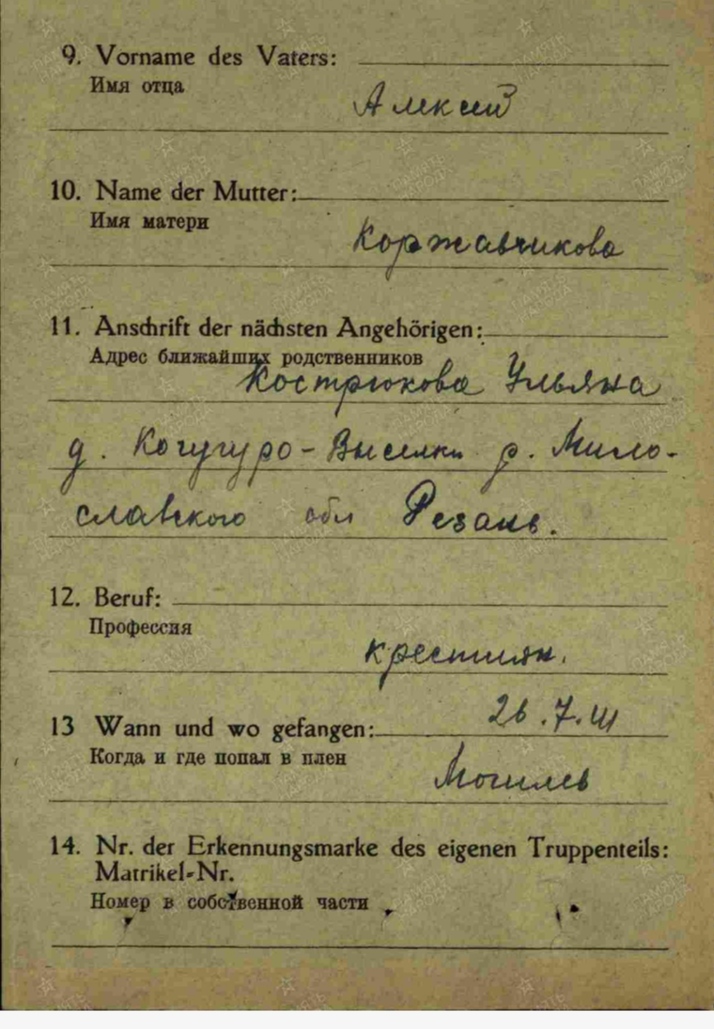 9. Vorname des Vaters:
Имя отца
Алексей
10. Name der Mutter:
Имя матери
Коржавчикова
11. Anschrift der nächsten Angehörigen:
Адрес ближайших родственников
Кострюкова Ульяна
д. Кочугуро-Выселки р. Мило-
славского обл Резань.
12. Beruf:
Профессия
крестиян.
13 Wann und wo gefangen:
26.7.41
Когда и где попал в плен
Могилев
14. Nr. der Erkennungsmarke des eigenen Truppenteils:
Matrikel-Nr.
Номер в собственной части